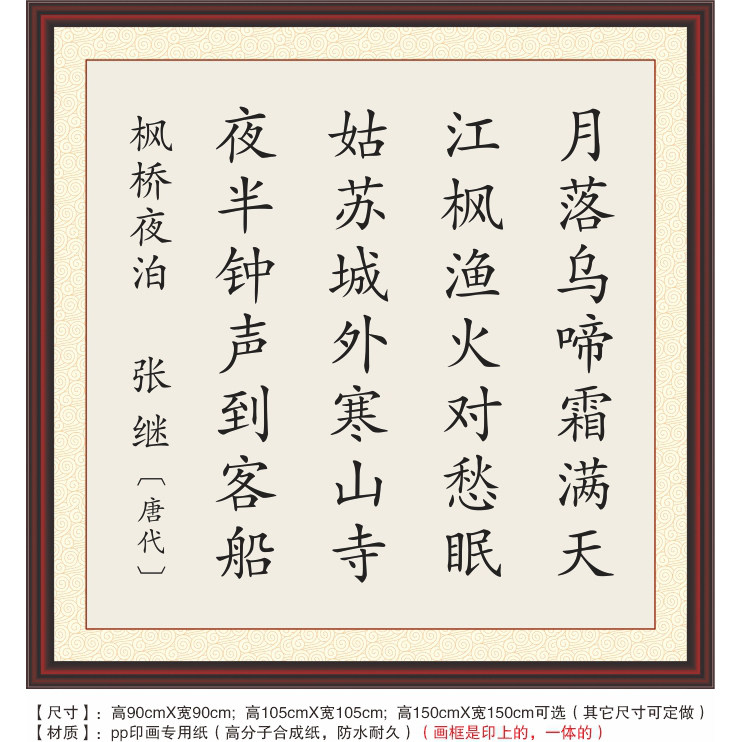 月落乌啼霜满天
江枫渔火对愁眠
姑苏城外寒山寺
夜半钟声到客船
枫桥夜泊 张继〔唐代〕
【尺寸】：高90cmX宽90cm; 高105cmX宽105cm; 高150cmX宽150cm可选（其它尺寸可定做）
【材质】：pp印画专用纸（高分子合成纸，防水耐久）（画框是印上的，一体的）